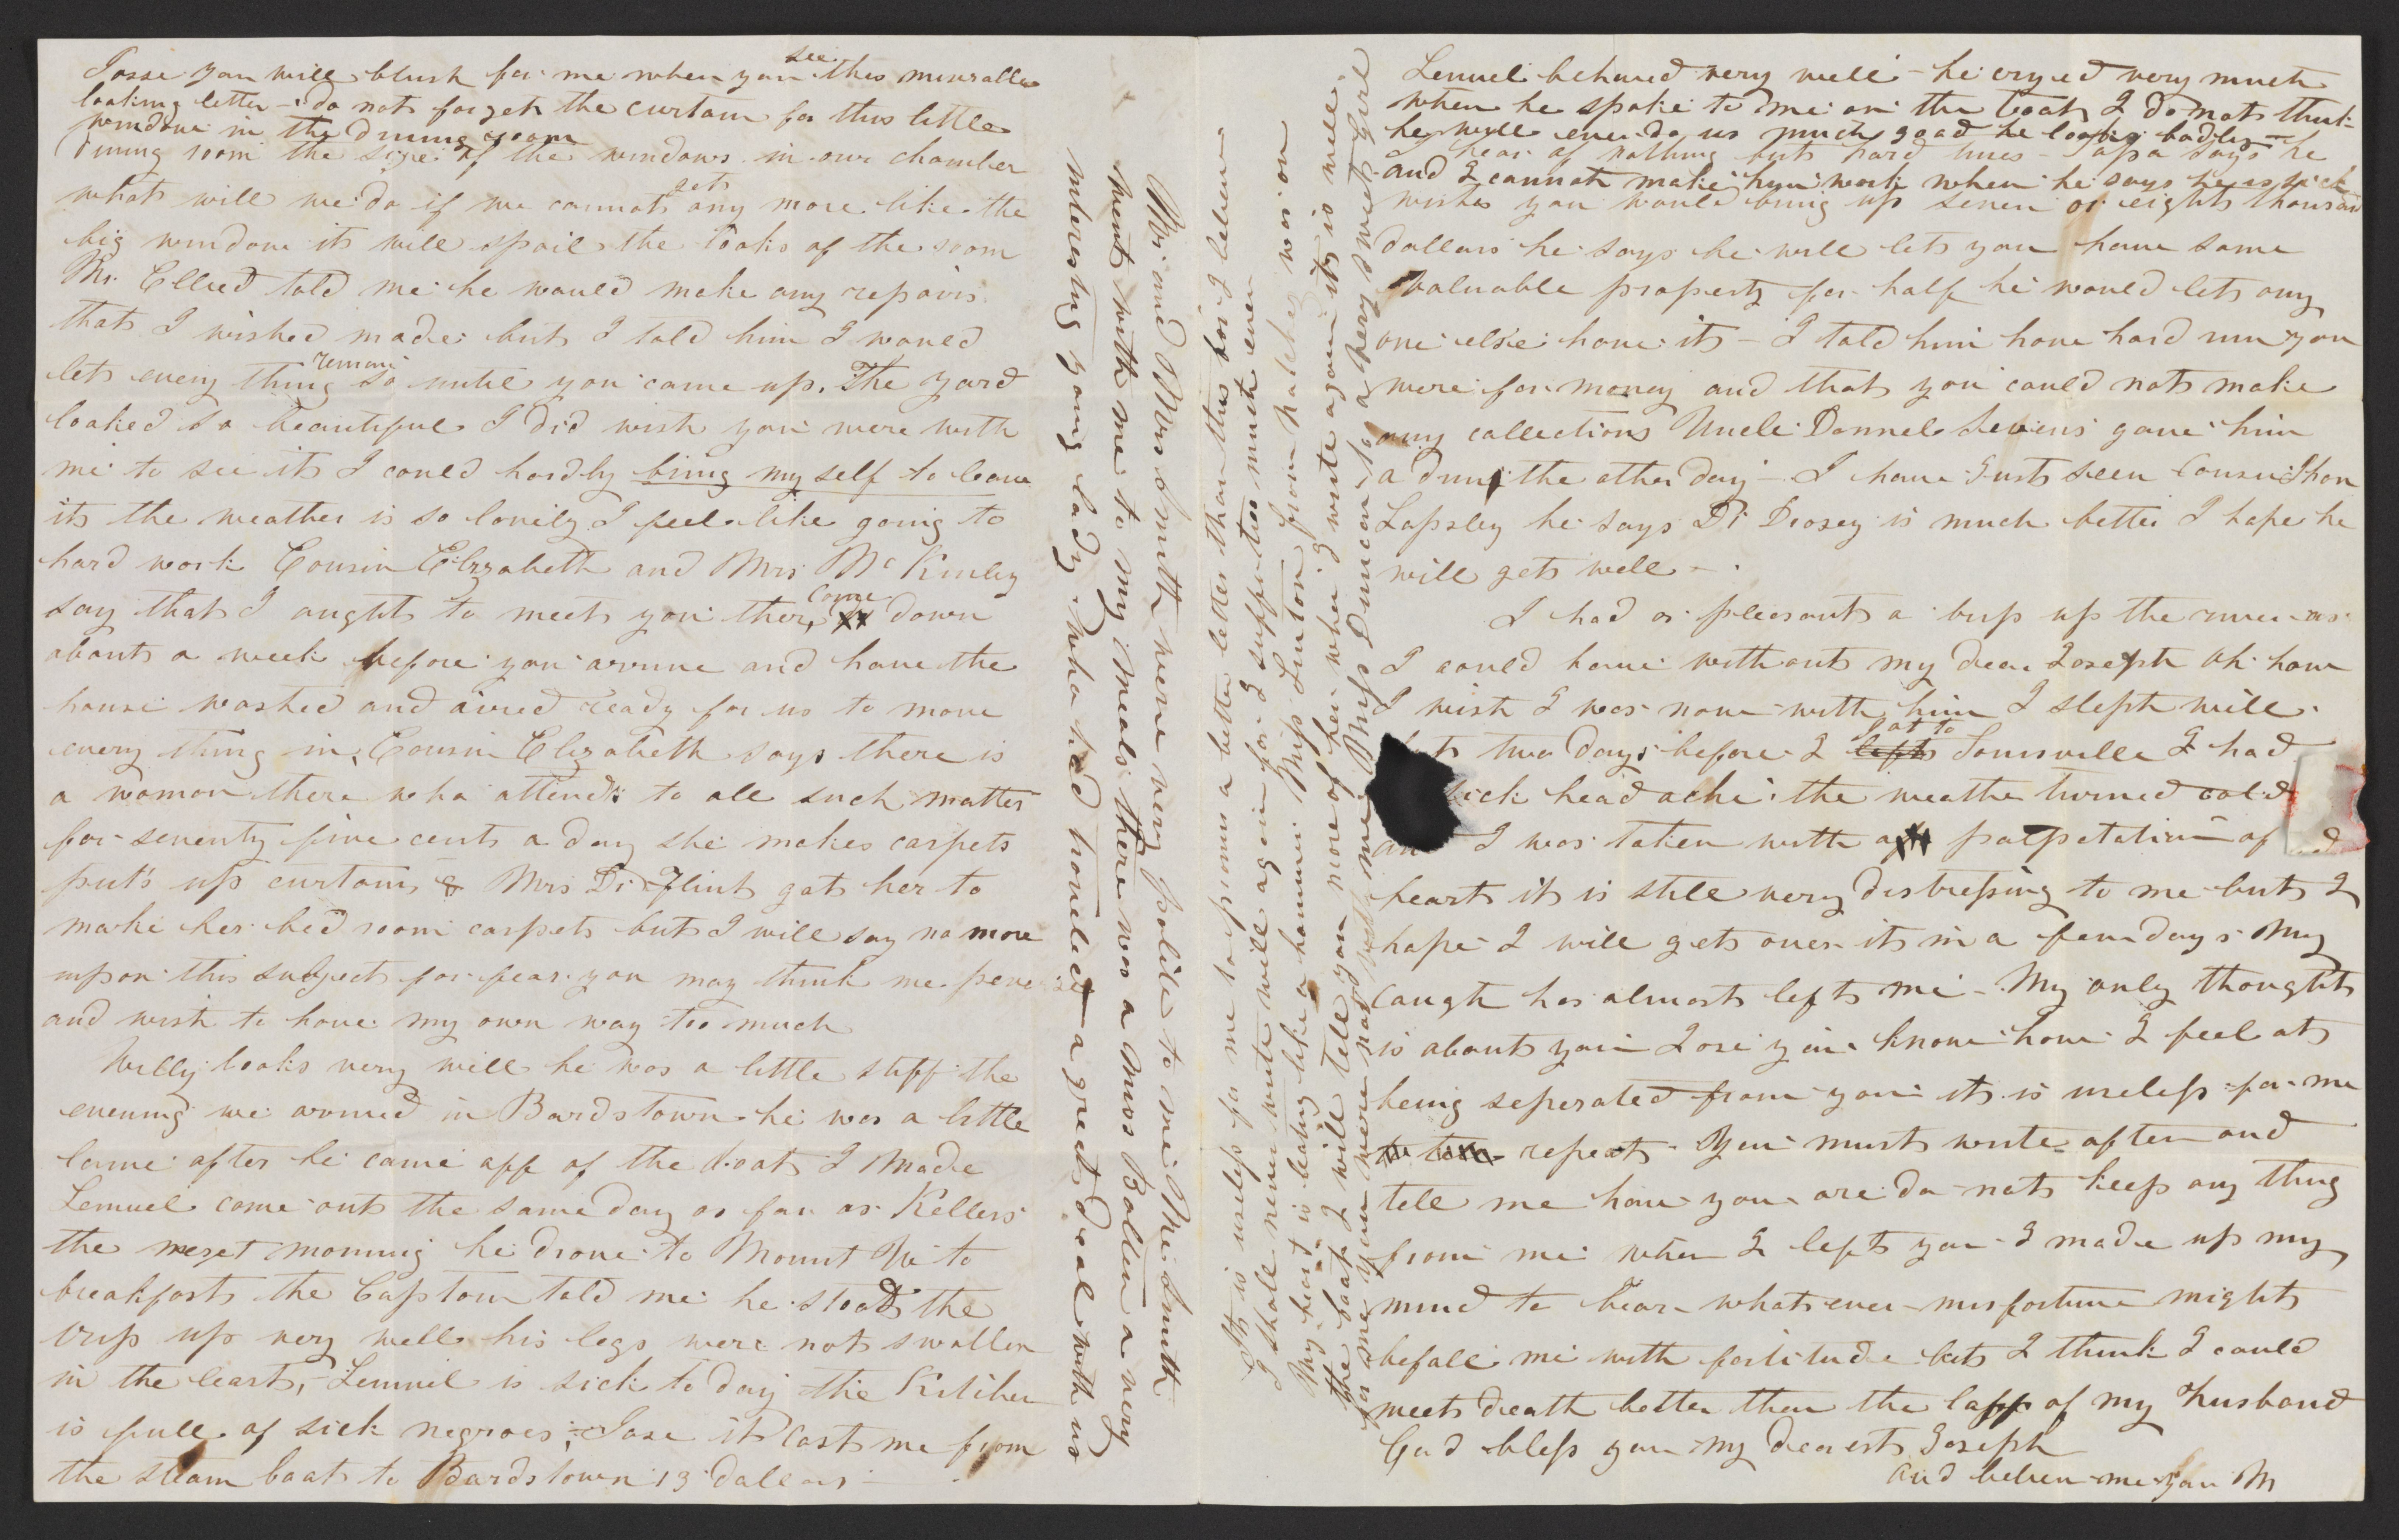 Josse you will blush for me when you see this miserable
looking letter - do not forget the curtain for this little
window in the dining room
dining room the size of the windows in our chamber
what will we do if we cannot get any more like the
big window it will spoil the looks of the room
Mr. Ellied told me he would make any repairs
that I wished made but I told him I would
let every thing remain so until you came up. The yard
looked so beautiful I did wish you were with
me to see it I could hardly bring my self to leave
it the weather is so lovely I feel like going to
hard work Cousin Elizabeth and Mrs McKinley
say that I ought to meet you ther, come down
about a week before you arrive and have the
house washed and aired ready for us to move
every thing in, Cousin Elizabeth says there is
a woman there who attends to all such matter
for seventy five cents a day she makes carpets
put's up curtains & Mrs Dr Flint got her to
make her bed room carpet but I will say no more
upon this subject for fear you may think me
and wish to have my own way too much
Willy looks very well he was a little stiff the
evening we arrived in Bardstown he was a little
lame after he came off of the boat I made
Lemuel come out the same day as far as Kellers
the next morning he drove to Mount to
breakfast the Captain told me he stood the
trip up very well his legs were not swollen
in the least, - Lemuel is sick to day the Kitchen
is full of sick negroes; - Jose it cost me from
the steam boat to Bardstown 13 dollars -
Mr. and Mrs Smith were very polite to me Mr. Smith
went with me to my meals there was a Miss Bolten a very
interesting young lady who had traveled a great deal with us
Lemuel behaved very well - he cryed very much
when he spoke to me on the boat I do not think
he will ever do us much good he looks badly -
and I cannot make him work when he says he is sick
I hear of nothing but hard times - Papa says he
wishes you would bring up seven or eight thousand
dollars he says he will let you have some
valuable property for half he would let any
one else have it - I told him how hard run you
were for money and that you could not make
any collections Uncle Donnel Sevens gave him
a dun the other day - I have just seen Cousin Thom
Lapsley he says Dr Dorsey is much better I hope he
will get well -
I had as pleasant a trip up the river as
I could have without my dear Joseph Oh how
I wish I was now with him I slept well
two days before I got to left Louisville I had
sick head ache the weather turned cold
and I was taken with a palpatation of
heart it is still very distressing to me but I
hope I will get over it in a few days My
caugh has almost left me - My only thought
is about you Jose you know how I feel at
being seperated from you it is useless for me
to repeat. You must write often and
tell me how you are do not keep any thing
from me when I left you I made up my
mind to bear whatsever misfortune might
befall me with fortitude but I think I could
meet death better then the loss of my husband
God bless you my dearest Joseph
and beliv me your M
It is useless for me to promis a better letter than this being
I shall never write well again for I suffer too much even
My heart is beating like a hammer. Miss Linton from Natchez was on
the boat I will tell you more of her when I write again it is well
for me you were not with me Miss Duncan is a very sweet girl